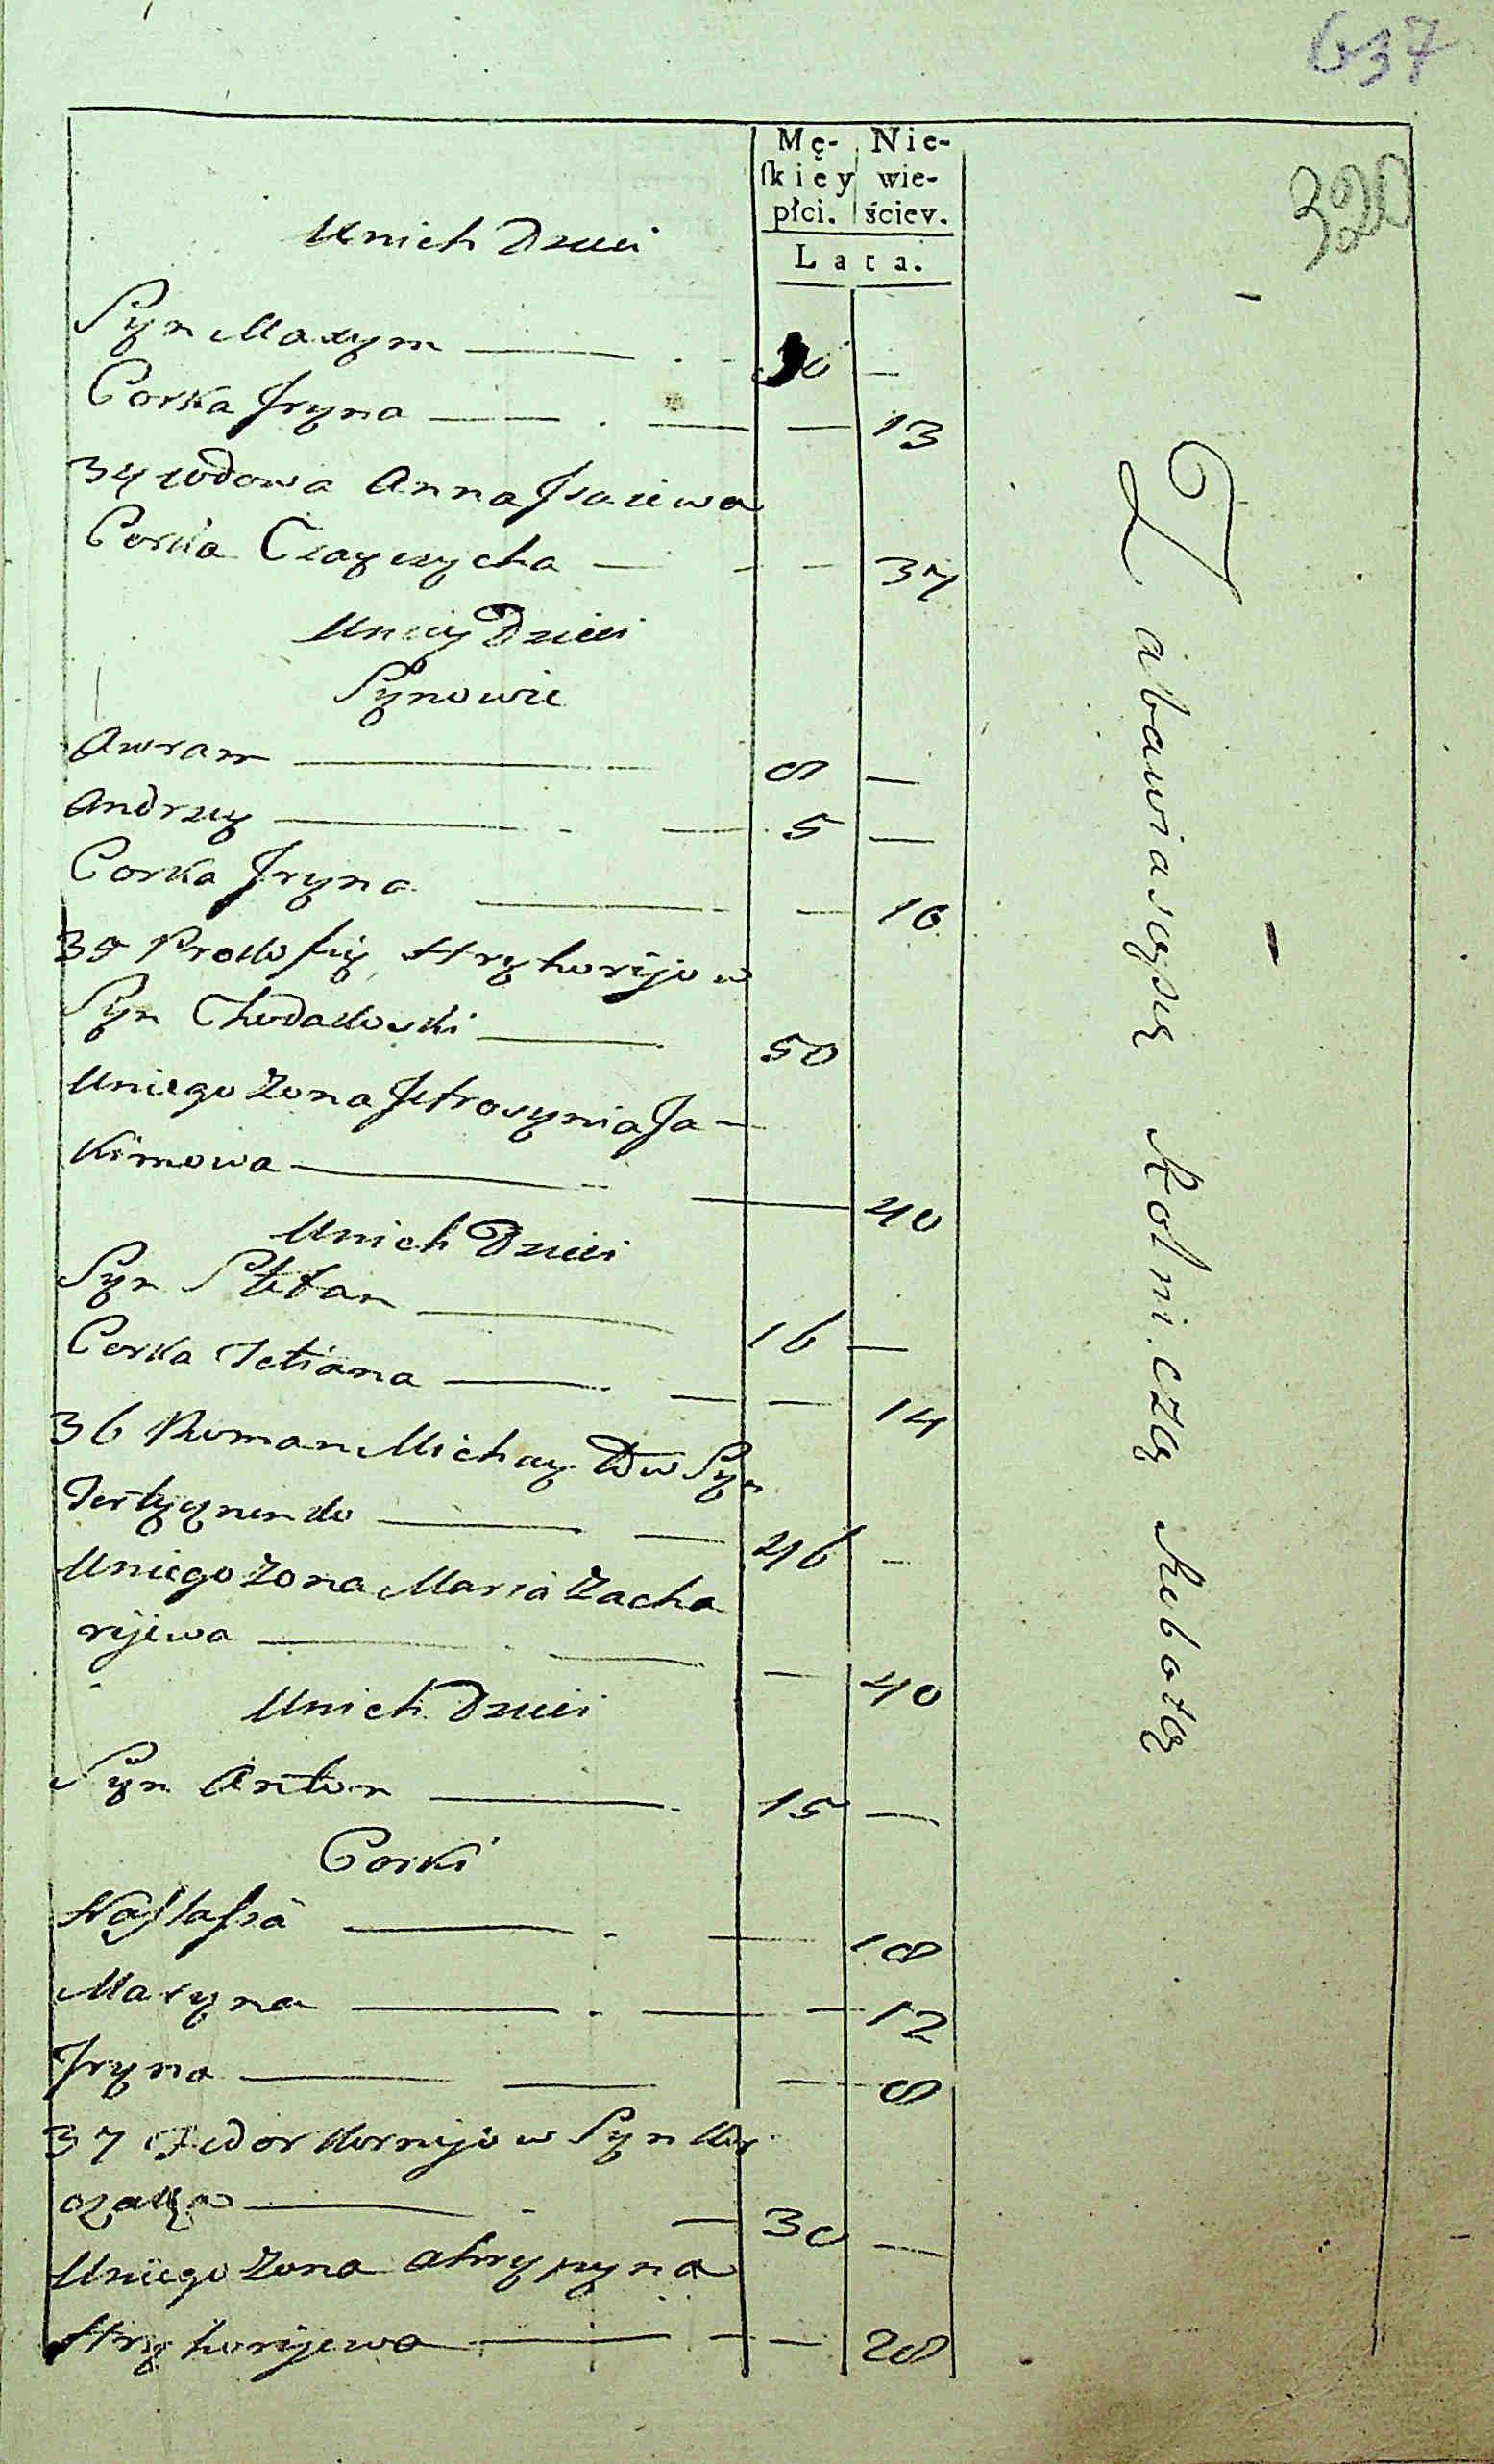 637
320
Mę- Nie-
ſkiey wie-
płci. ściey.
Lata.
U nich Dzieci
Syn Maxym — —
Corka Jryna — — 13
34 wdowa Anna Jsaiewa
Corka — 37
U niey Dzieci
Synowie
Awram — 8 —
Andrzey — 5 —
Corka Jryna — — 16
35 Prokofiy Hryhorijow
Syn Chodakowski — 50
U niego Zona Jefrosynia Ja-
kimowa — — 40
U nich Dzieci
Syn Stefan — 16 —
Corka Tetiana — — 14
36 Roman Michayłow Syn
— 46 —
U niego Zona Maria Zacha
rijewa — — 40
U nich Dzieci
Syn Anton — 15 —
Corki
Nastasia — 18
Maryna — — 12
Jryna — — 8
37 Fedor Kornijow Syn
— 30 —
U niego Zona Ahrypyna
Hryhorijewa — — 28
Zabawia się Rolniczą Robotą